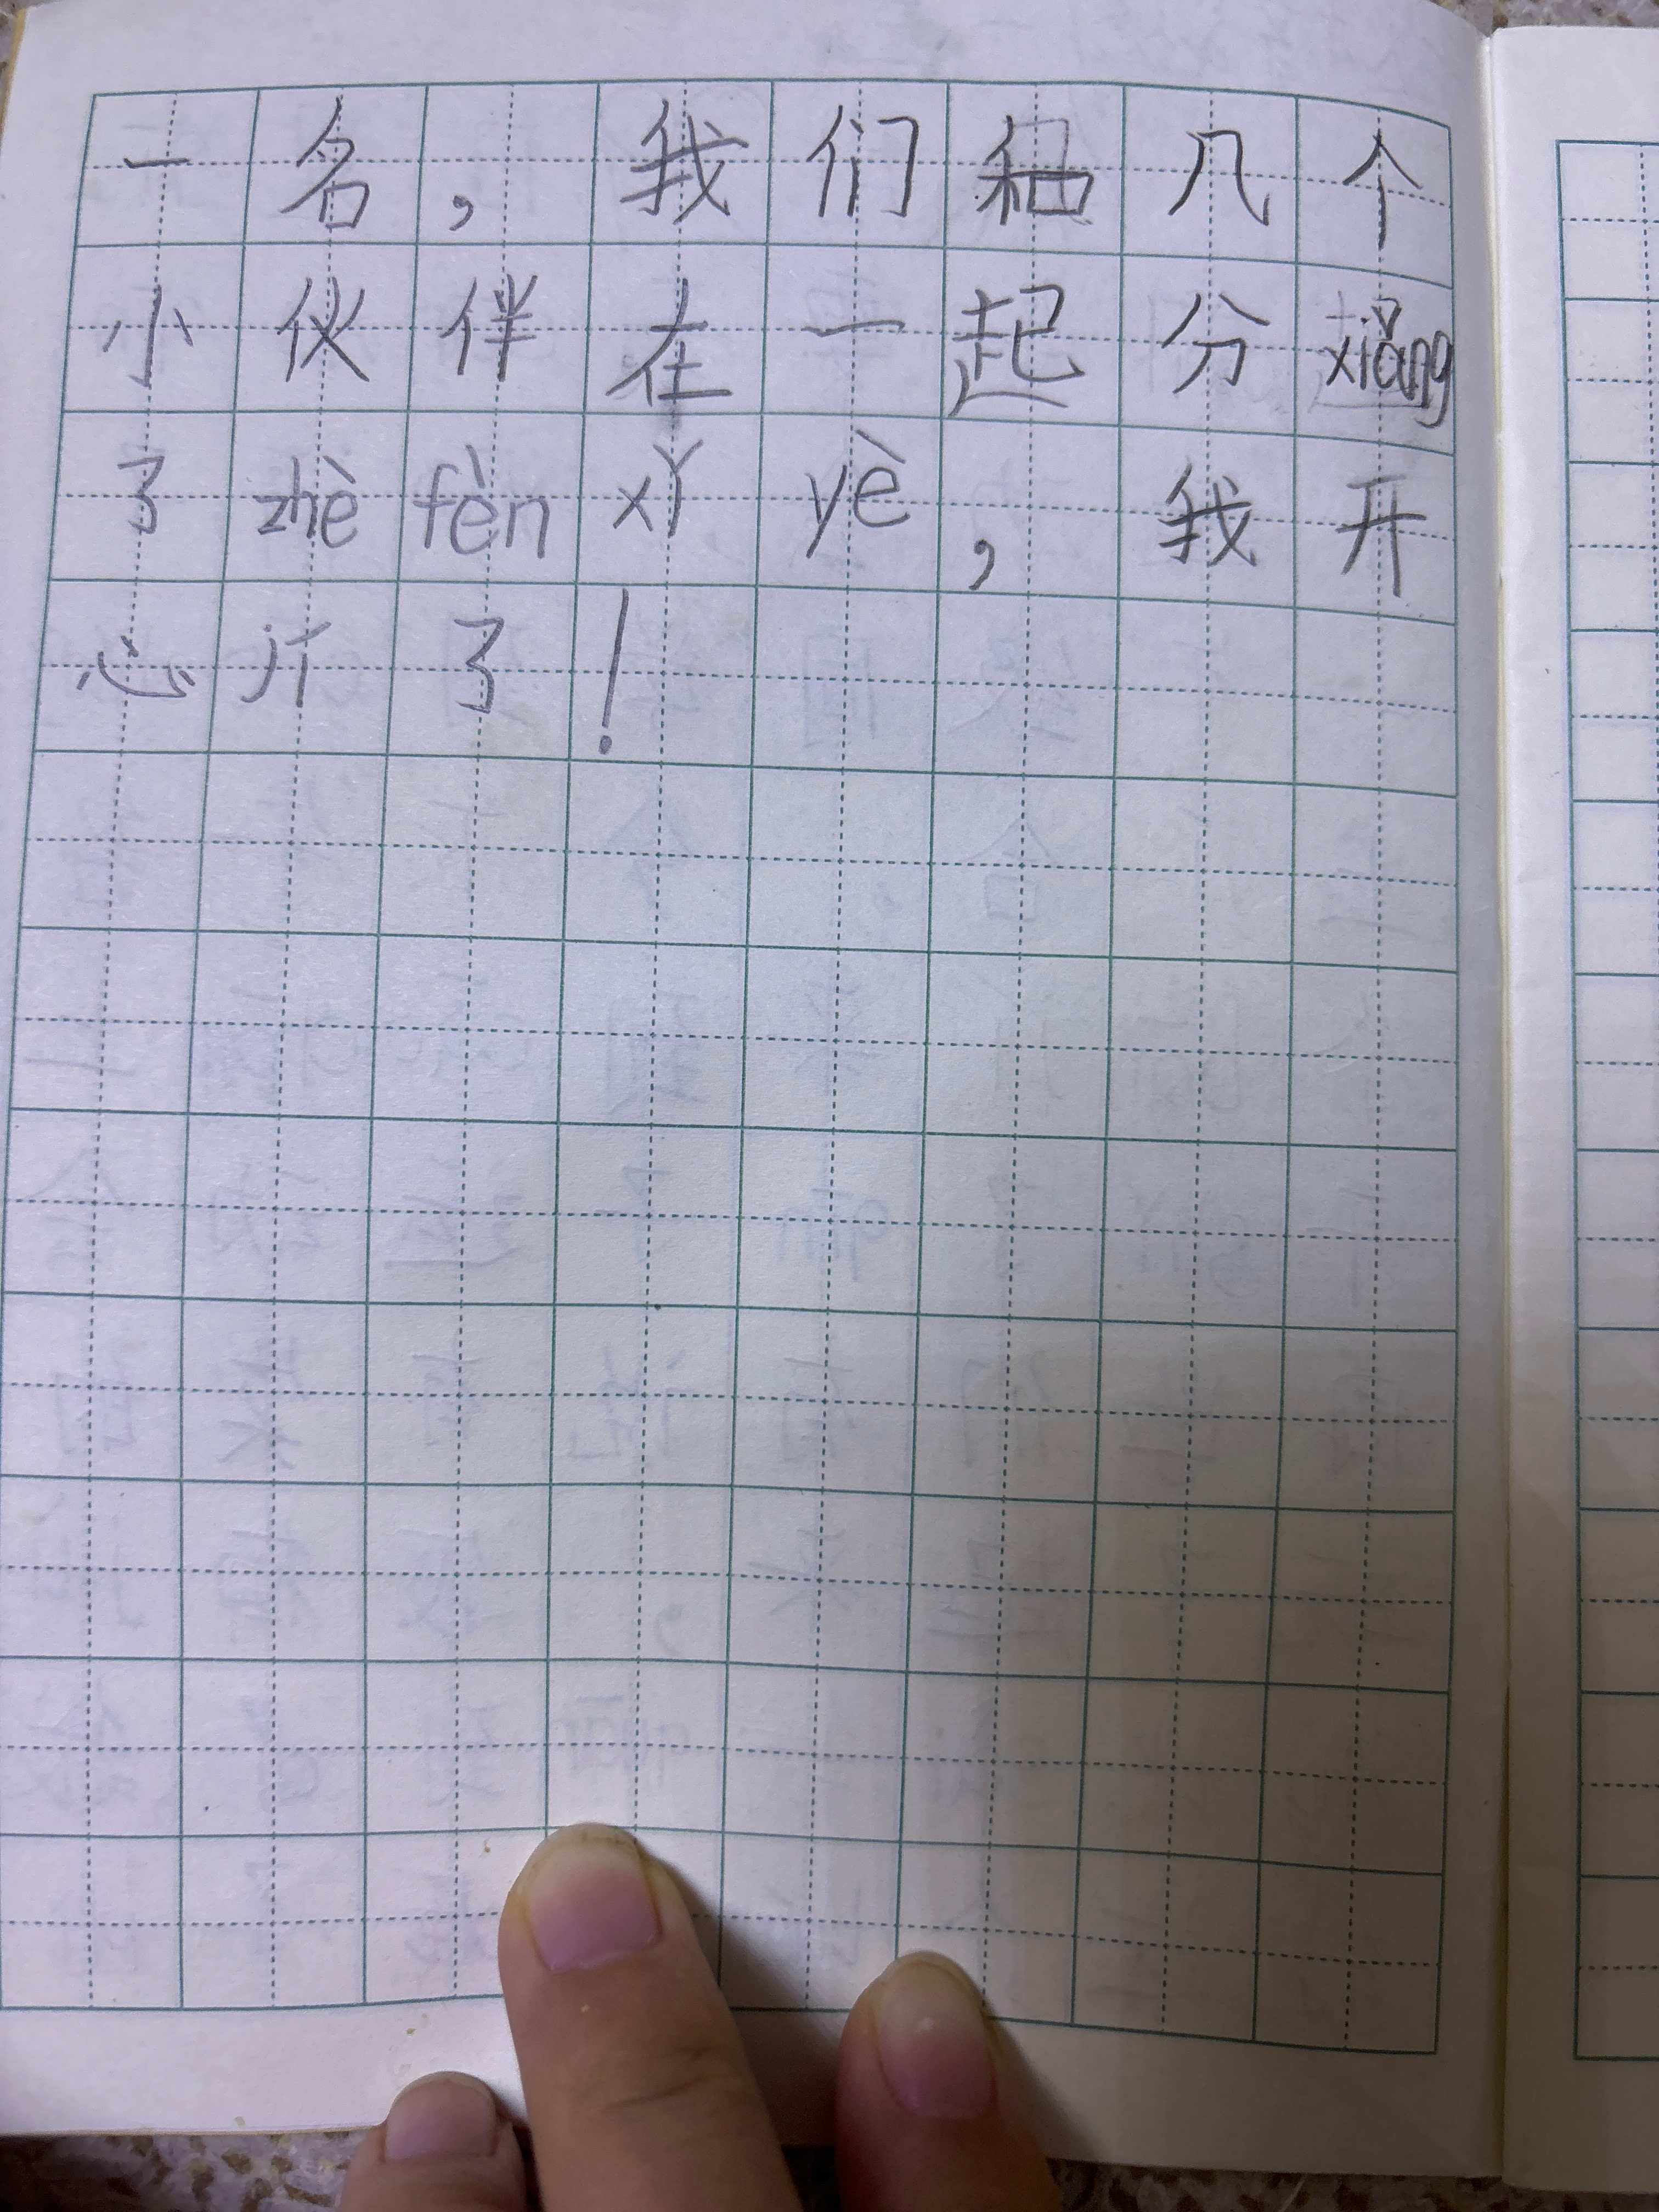 一名，我们和几个
小伙伴在一起分xiǎng
了zhè fèn xǐ yè，我开
心jí了！